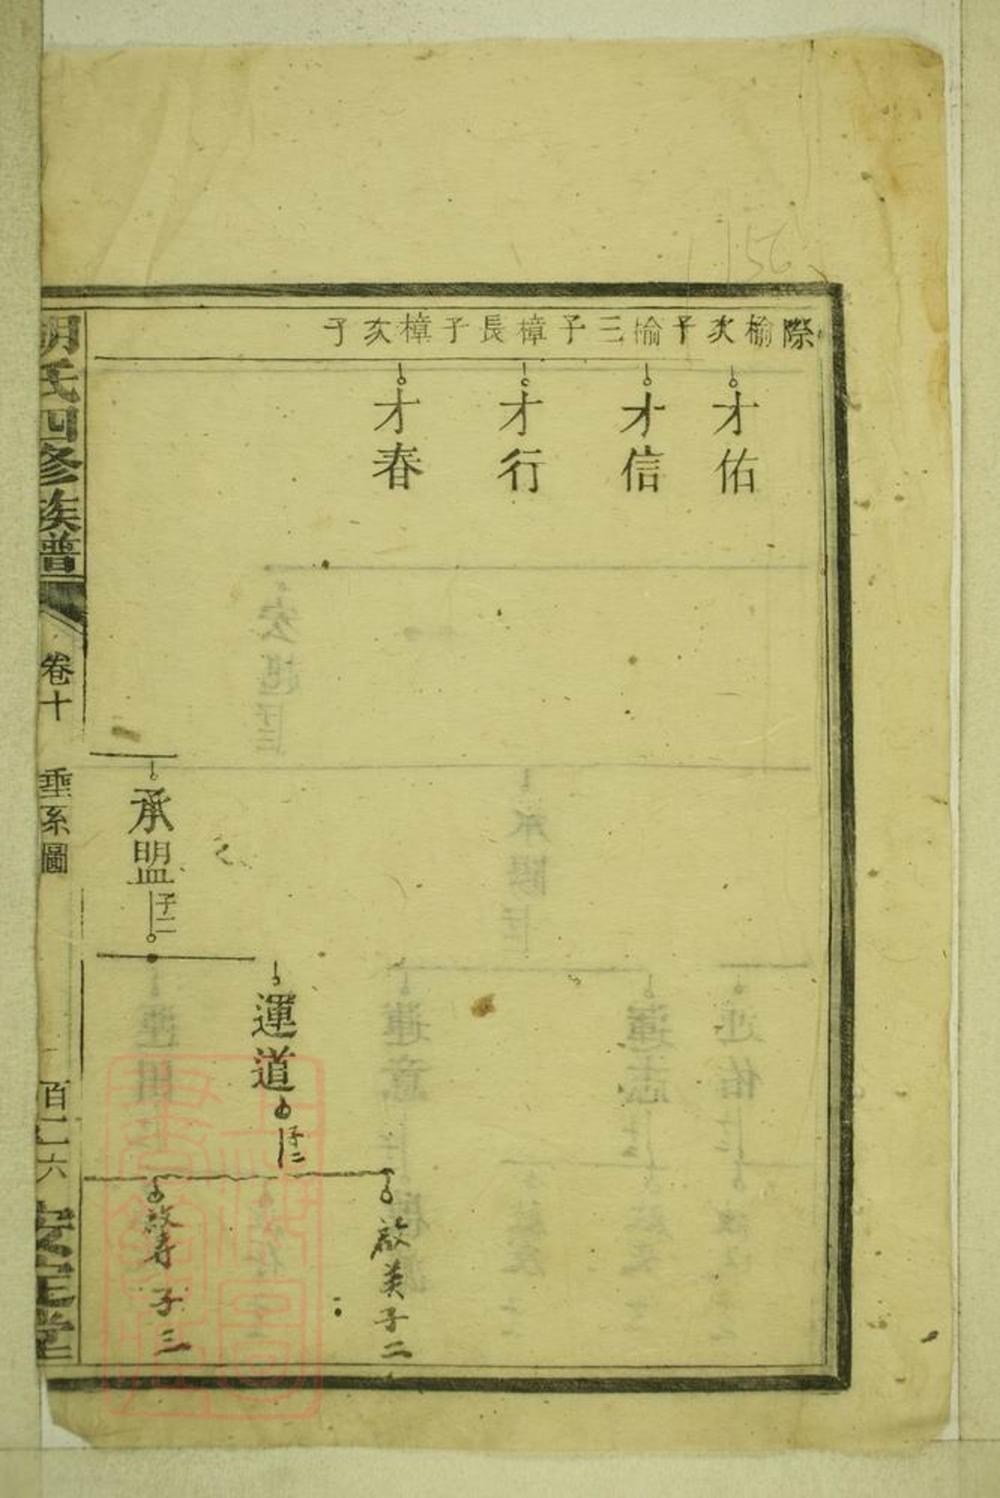 際榆次子
榆三子
樟長子
樟次子
才佑
才信
才行
才春
承盟 子二
運道 子二
啟美 子二
啟壽 子三
胡氏四修族譜
卷十
垂系圖
百二六
安定堂